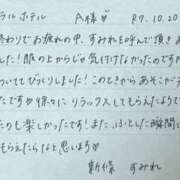 ラルホテル A様♡ R7.10.20
終わりでお疲れの中、すみれを呼んで頂きあ
した!服の上からじゃ気付けなかったのですが
ついててびっくりしました!このときからあそこがテン
たですが徐々に リラックスしてもらえたようで
たのも楽しかったです!また、ふとした瞬間に
もらえたらなと思います♡
新條 すみれ